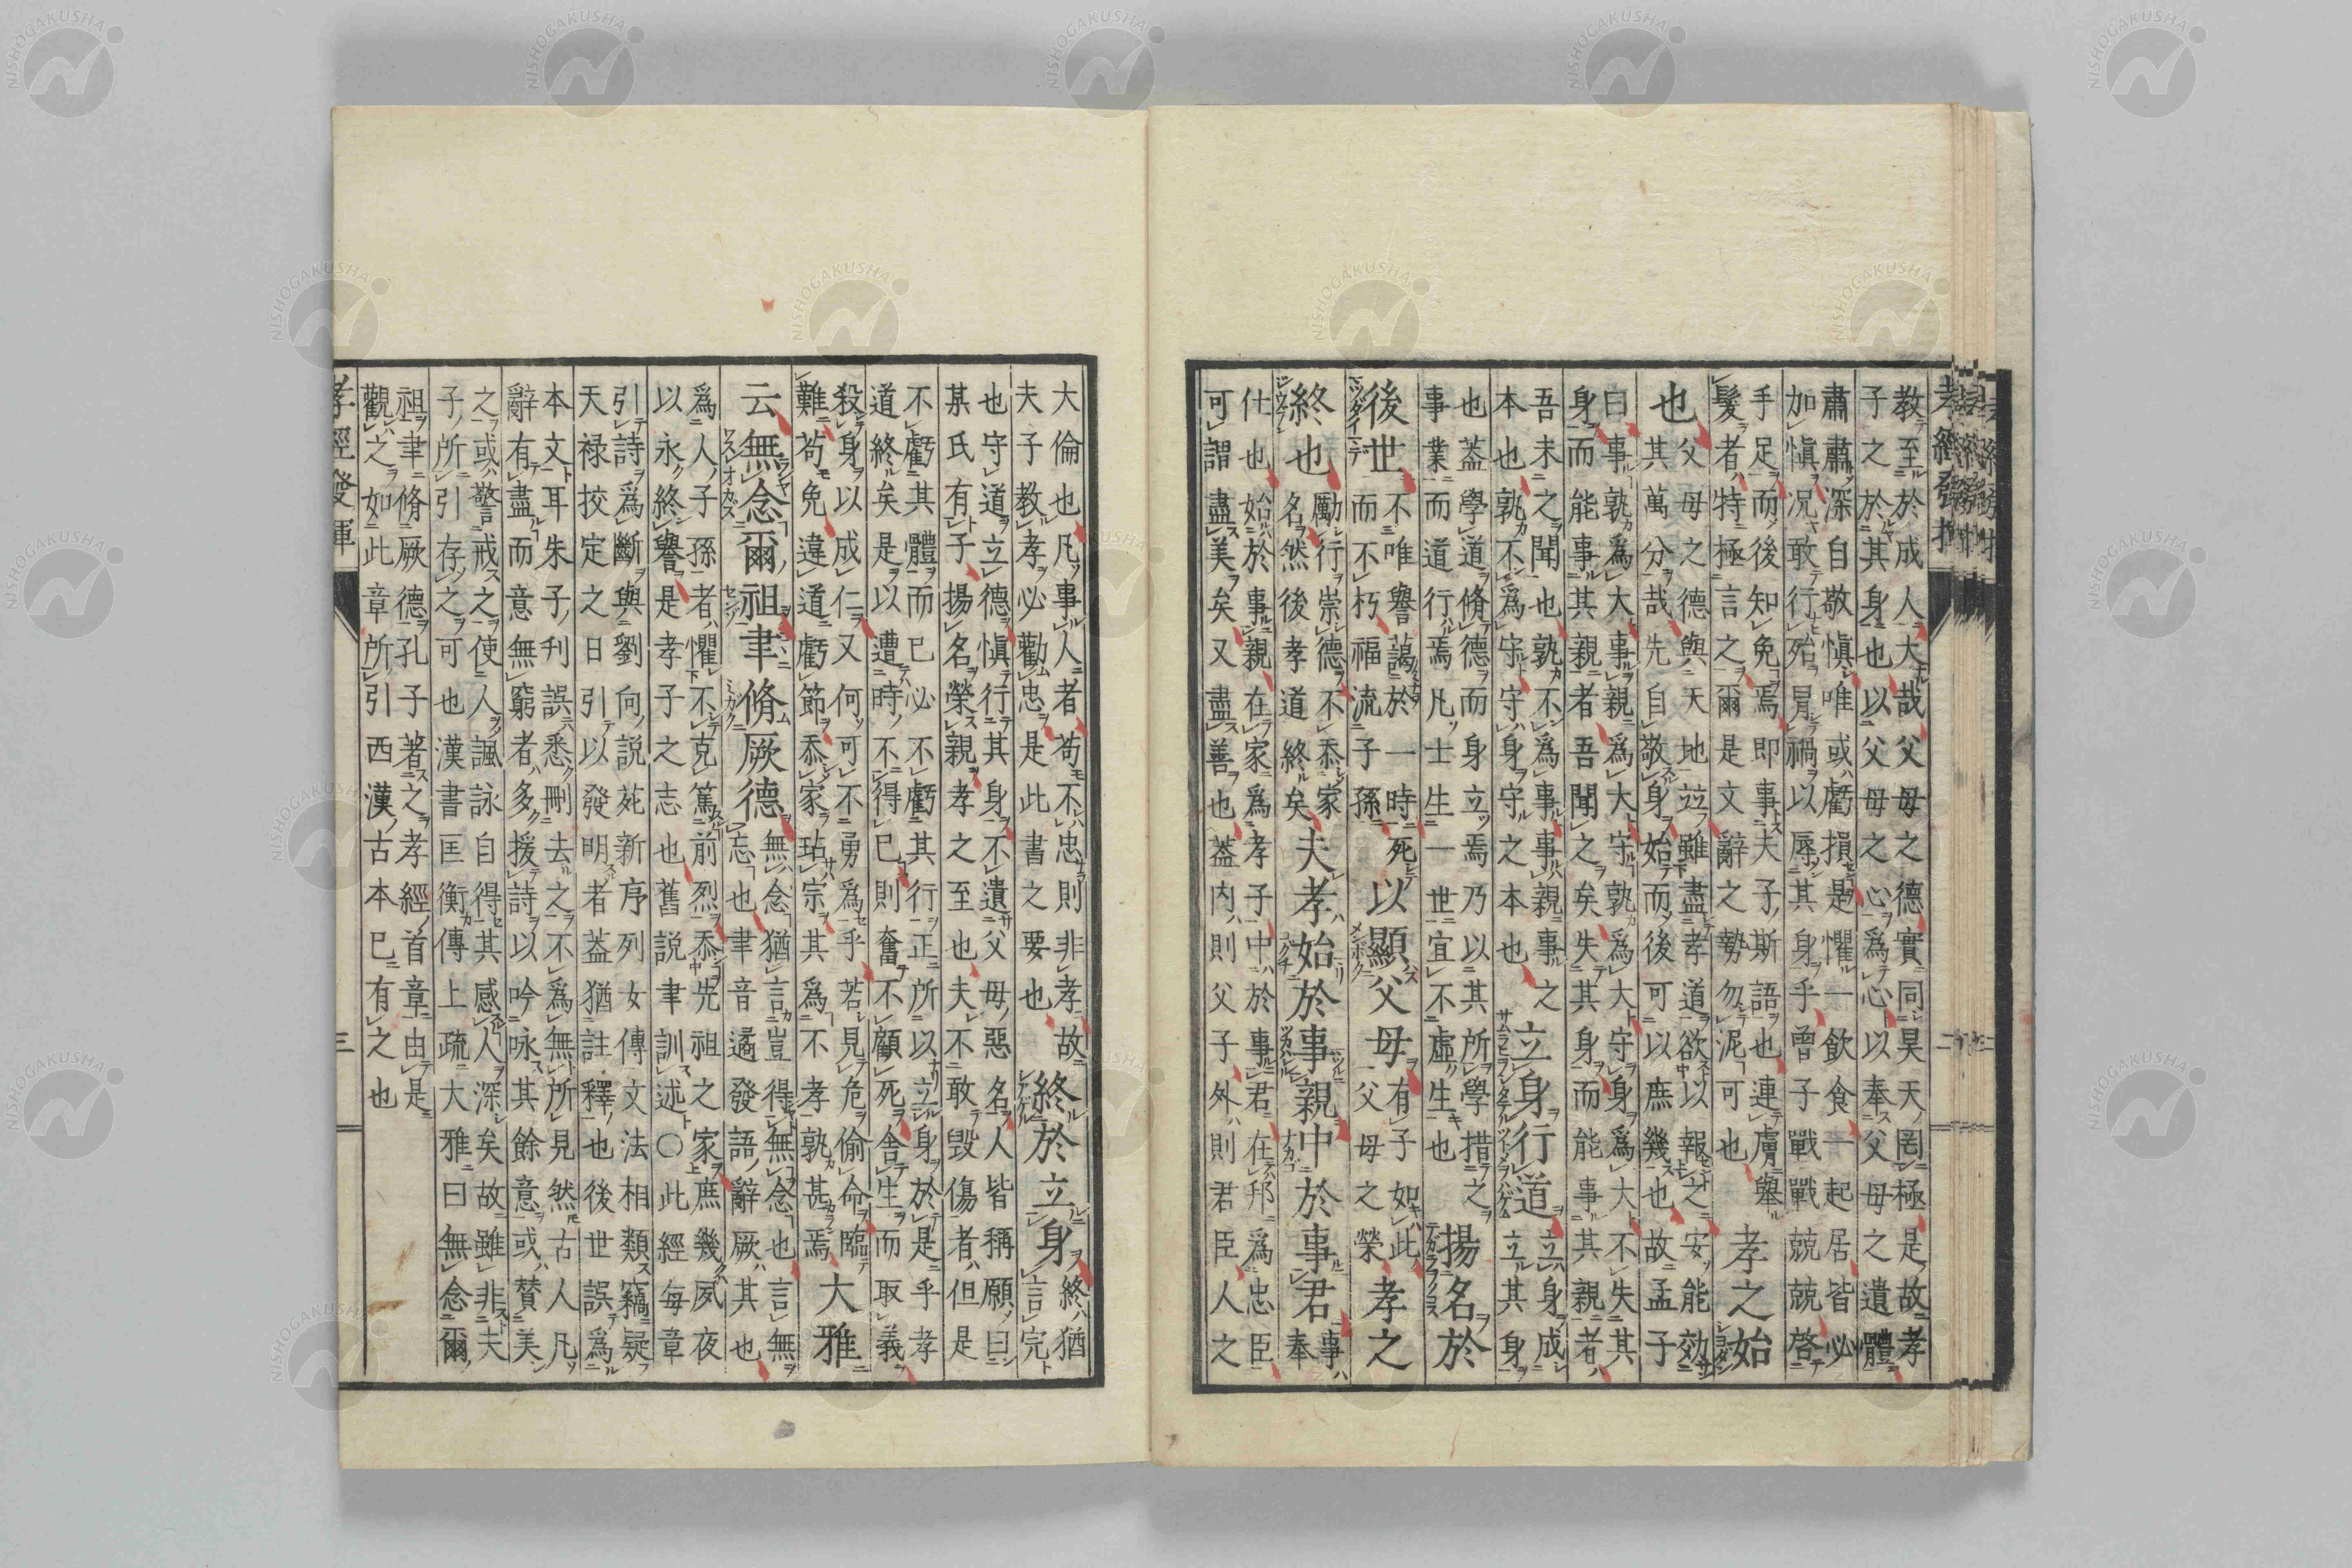 教至於成人大哉父母之德實同昊天罔極是故孝
子之於其身也以父母之心爲心以奉父母之遺體
肅肅深自敬愼唯或虧損是懼一飲食一起居皆必
加愼況敢行殆冐禍以辱其身乎曾子戰戰兢兢啓
手足而後知免焉即事夫子斯語也連膚擧
髮者特極言之爾是文辭之勢勿泥可也
孝之始
也
父母之德與天地竝雖盡孝道欲以報之安能効
其萬分哉先自敬身始而後可以庶幾也故孟子
曰事孰爲大事親爲大守孰爲大守身爲大不失其
身而能事其親者吾聞之矣失其身而能事其親者
吾未之聞也孰不爲事事親事之
本也孰不爲守守身守之本也
立身行道
立身成
立其身
也蓋學道脩德而身立焉乃以其所學措之
事業而道行焉凡士生一世宜不虛生也
揚名於
後世
不唯譽藹於一時死
而不朽福流子孫
以顯父母
有子如此
父母之榮
孝之
終也
勵行崇德不忝家
名然後孝道終矣
夫孝始於事親中於事君
事
奉
仕也始於事親在家爲孝子中於事君在邦爲忠臣
可謂盡美矣又盡善也蓋内則父子外則君臣人之
大倫也凡事人者苟不忠則非孝故
夫子教孝必勸忠是此書之要也
終於立身
終猶
言完
也守道立德愼行其身不遺父母惡名人皆稱願曰
某氏有子揚名榮親孝之至也夫不敢毀傷者但是
不虧其體而已必不虧其行正所以立身於是乎孝
道終矣是以遭時不得已則奮不顧死舍生而取義
殺身以成仁又何可不勇爲乎若見危偷命臨
難苟免違道虧節忝家玷宗其爲不孝孰甚焉
大雅
云無念爾祖聿脩厥德
無念猶言豈得無念也言無
忘也聿音遹發語辭厥其也
爲人子孫者懼不克篤前烈忝先祖之家庶幾夙夜
以永終譽是孝子之志也舊說聿訓述○此經每章
引詩爲斷與劉向說苑新序列女傳文法相類竊疑
天祿挍定之日引以發明者蓋猶註釋也後世誤爲
本文耳朱子刋誤悉刪去之不爲無所見然古人凡
辭有盡而意無窮者多援詩以吟咏其餘意或賛美
之或警戒之使人諷詠自得其感人深矣故雖非夫
子所引存之可也漢書匡衡傳上疏大雅曰無念爾
祖聿脩厥德孔子著之孝經首章由是
觀之如此章所引西漢古本已有之也
孝經發揮 三